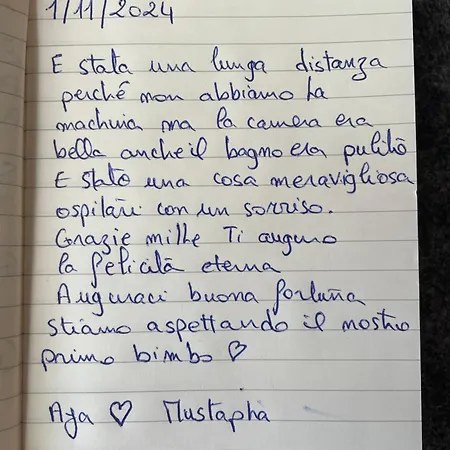 1/11/2024
E stata una lunga distanza
perché non abbiamo la
machina ma la camera era
bella anche il bagno era pulitò
E stato una cosa meravigliosa
ospitari con un sorriso.
Grazie mille Ti auguro
la felicità eterna
Auguraci buona fortuna
stiamo aspettando il nostro
primo bimbo ♡
Aya ♡ Mustapha